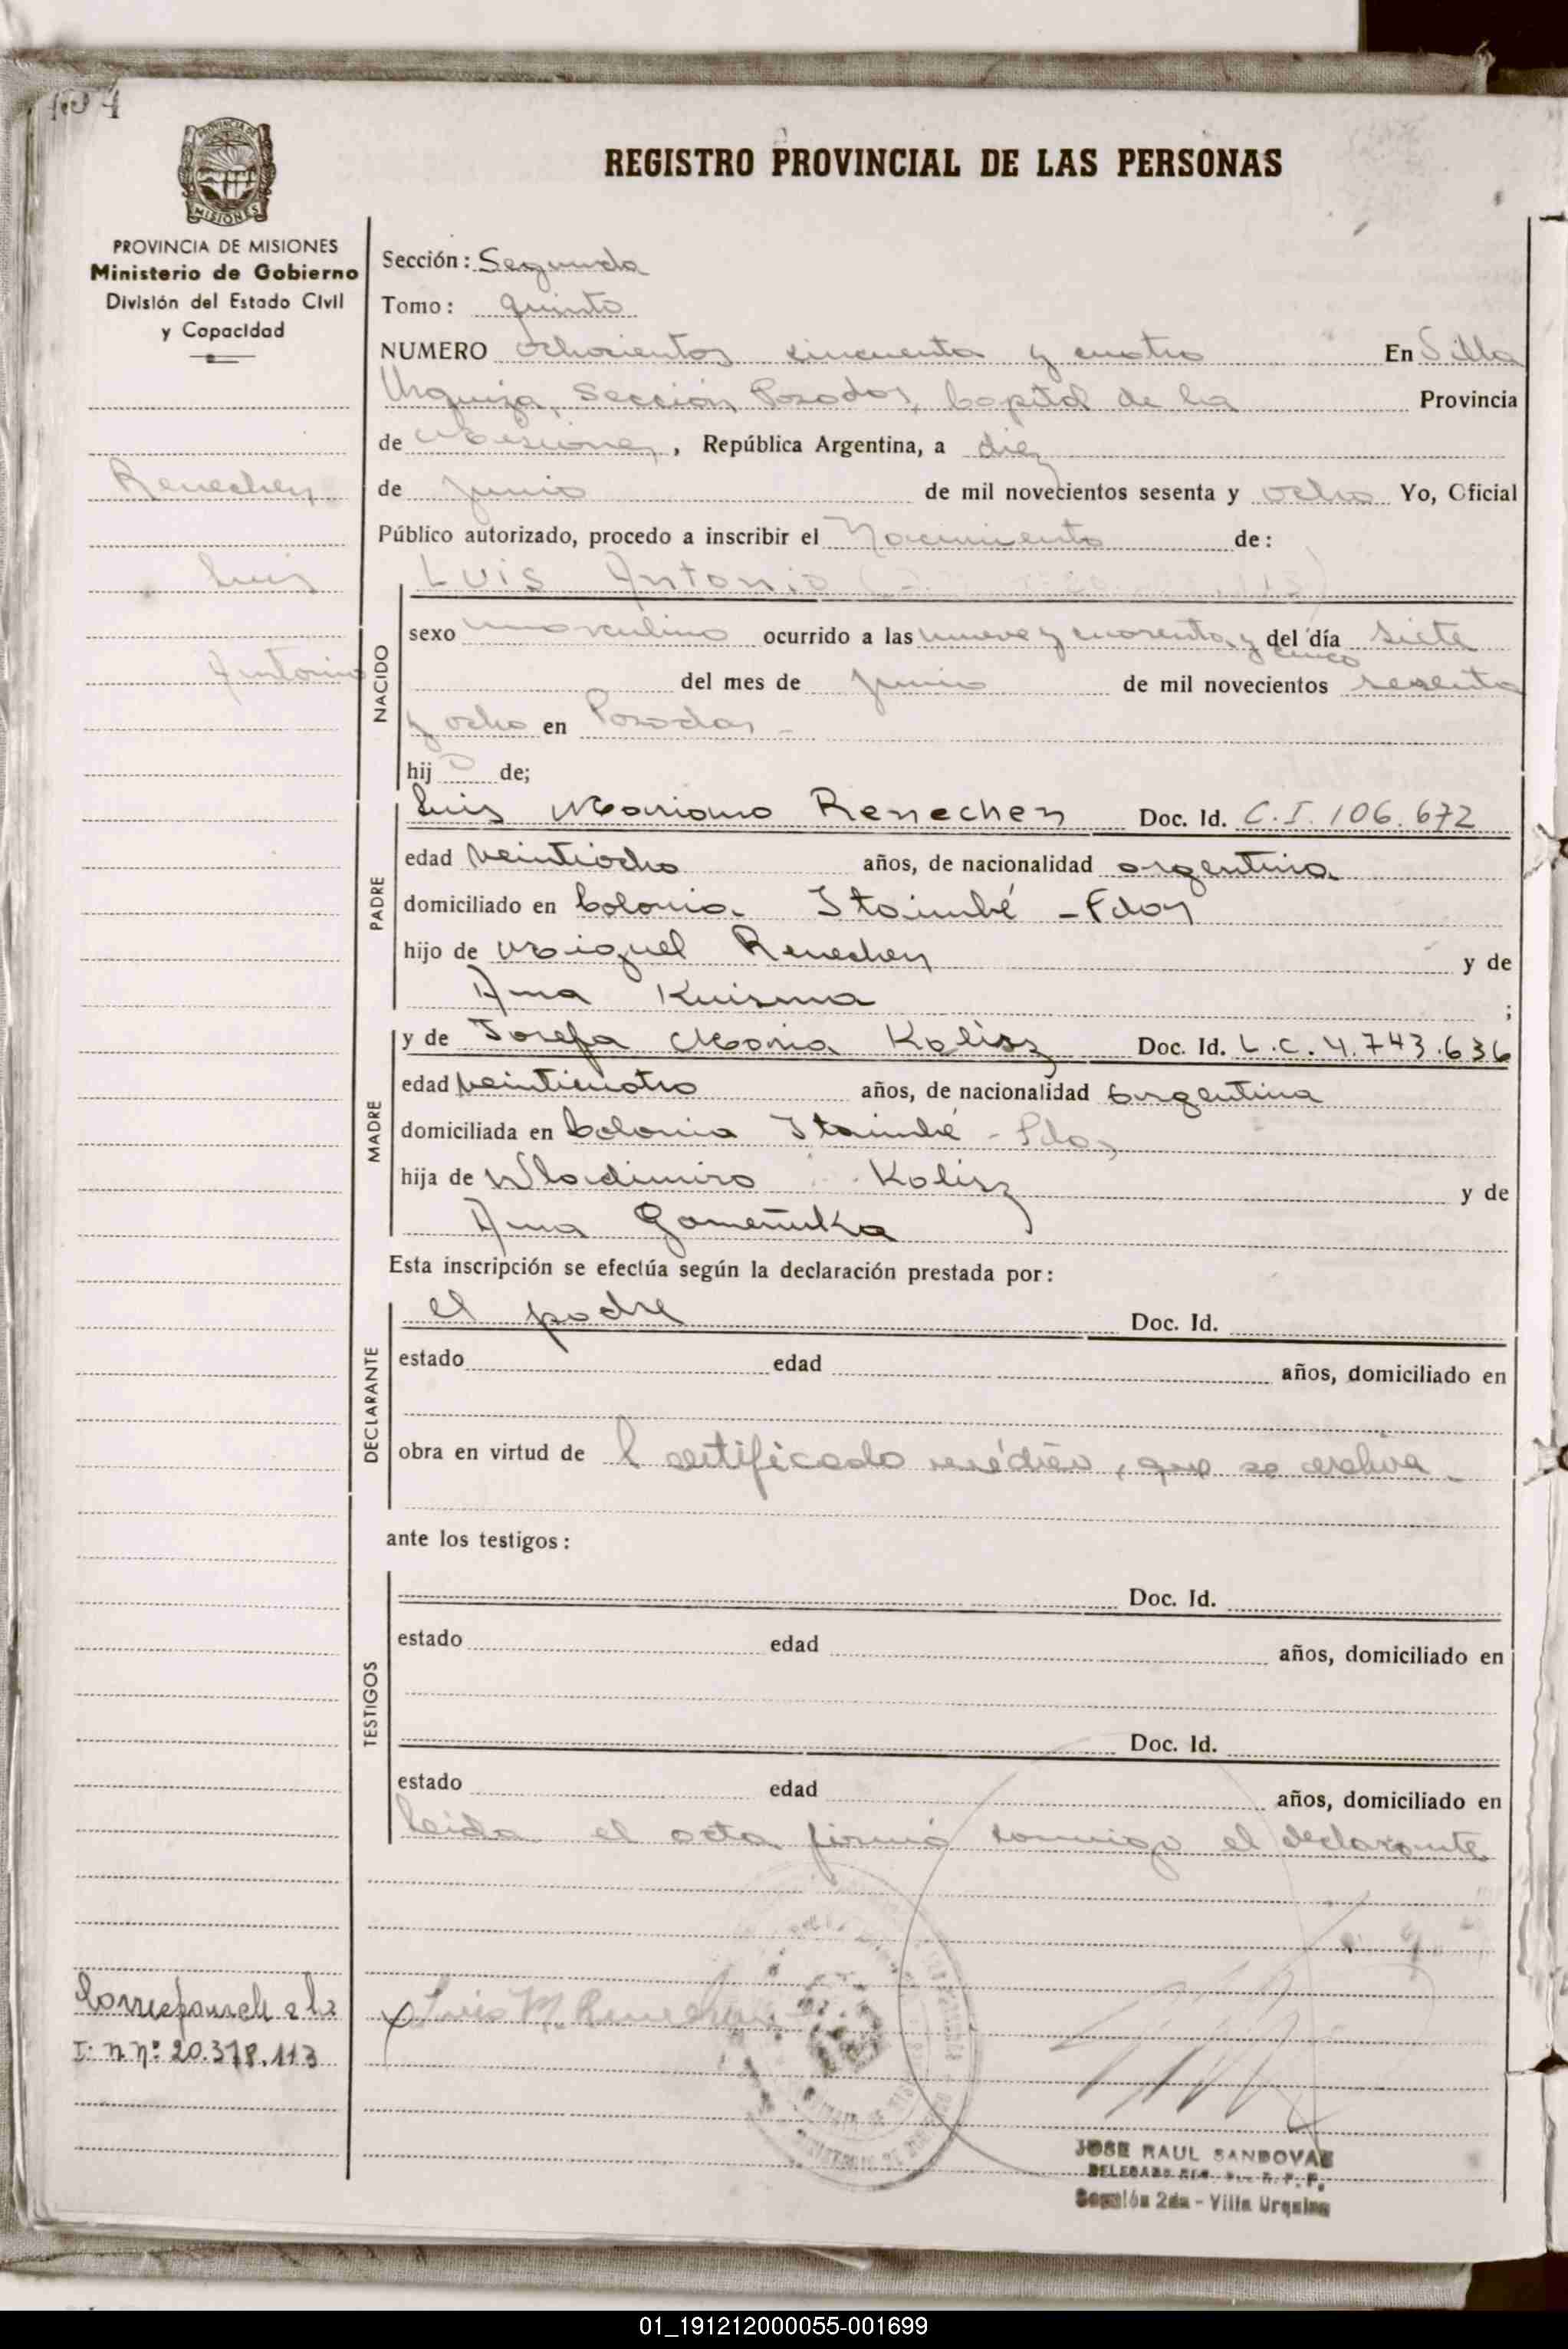 REGISTRO PROVINCIAL DE LAS PERSONAS
PROVINCIA DE MISIONES
MISIONES
PROVINCIA DE MISIONES
Ministerio de Gobierno
División del Estado Civil
y Capacidad
Renechen
Luis
Antonio
Sección: Segunda
Tomo: quinto
NUMERO ochocientos cincuenta y cuatro En Villa
Urquiza, Sección Posadas, Capital de la Provincia
de Misiones, República Argentina, a diez
de junio de mil novecientos sesenta y ocho Yo, Oficial
Público autorizado, procedo a inscribir el Nacimiento de:
NACIDO
LUIS Antonio
sexo masculino ocurrido a las nueve y cuarenta y cinco del día siete
del mes de junio de mil novecientos sesenta
y ocho en Posadas -
hijo de;
PADRE
Luis Mariano Renechen Doc. Id. C.I. 106.672
edad veintiocho años, de nacionalidad argentina
domiciliado en Colonia Itaimbé - Pdas
hijo de Miguel Renechen y de
Ana Kuisma ;
MADRE
y de Josefa Maria Kolisz Doc. Id. L.C. 4.743.636
edad veinticuatro años, de nacionalidad argentina
domiciliada en Colonia Itaimbé - Pdas
hija de Wladimiro Kolisz y de
Ana
Esta inscripción se efectúa según la declaración prestada por:
DECLARANTE
el padre Doc. Id.
estado edad años, domiciliado en
obra en virtud de l certificado médico, que se archiva.
ante los testigos:
TESTIGOS
Doc. Id.
estado edad años, domiciliado en
Doc. Id.
estado edad años, domiciliado en
Leida el acta firmó conmigo el declarante
Corresponde a la
I. n nº: 20.378.113
Luis M. Renechen
JOSE RAUL SANDOVAL
DELEGADO
Sección 2da - Villa Urquiza
01_191212000055-001699